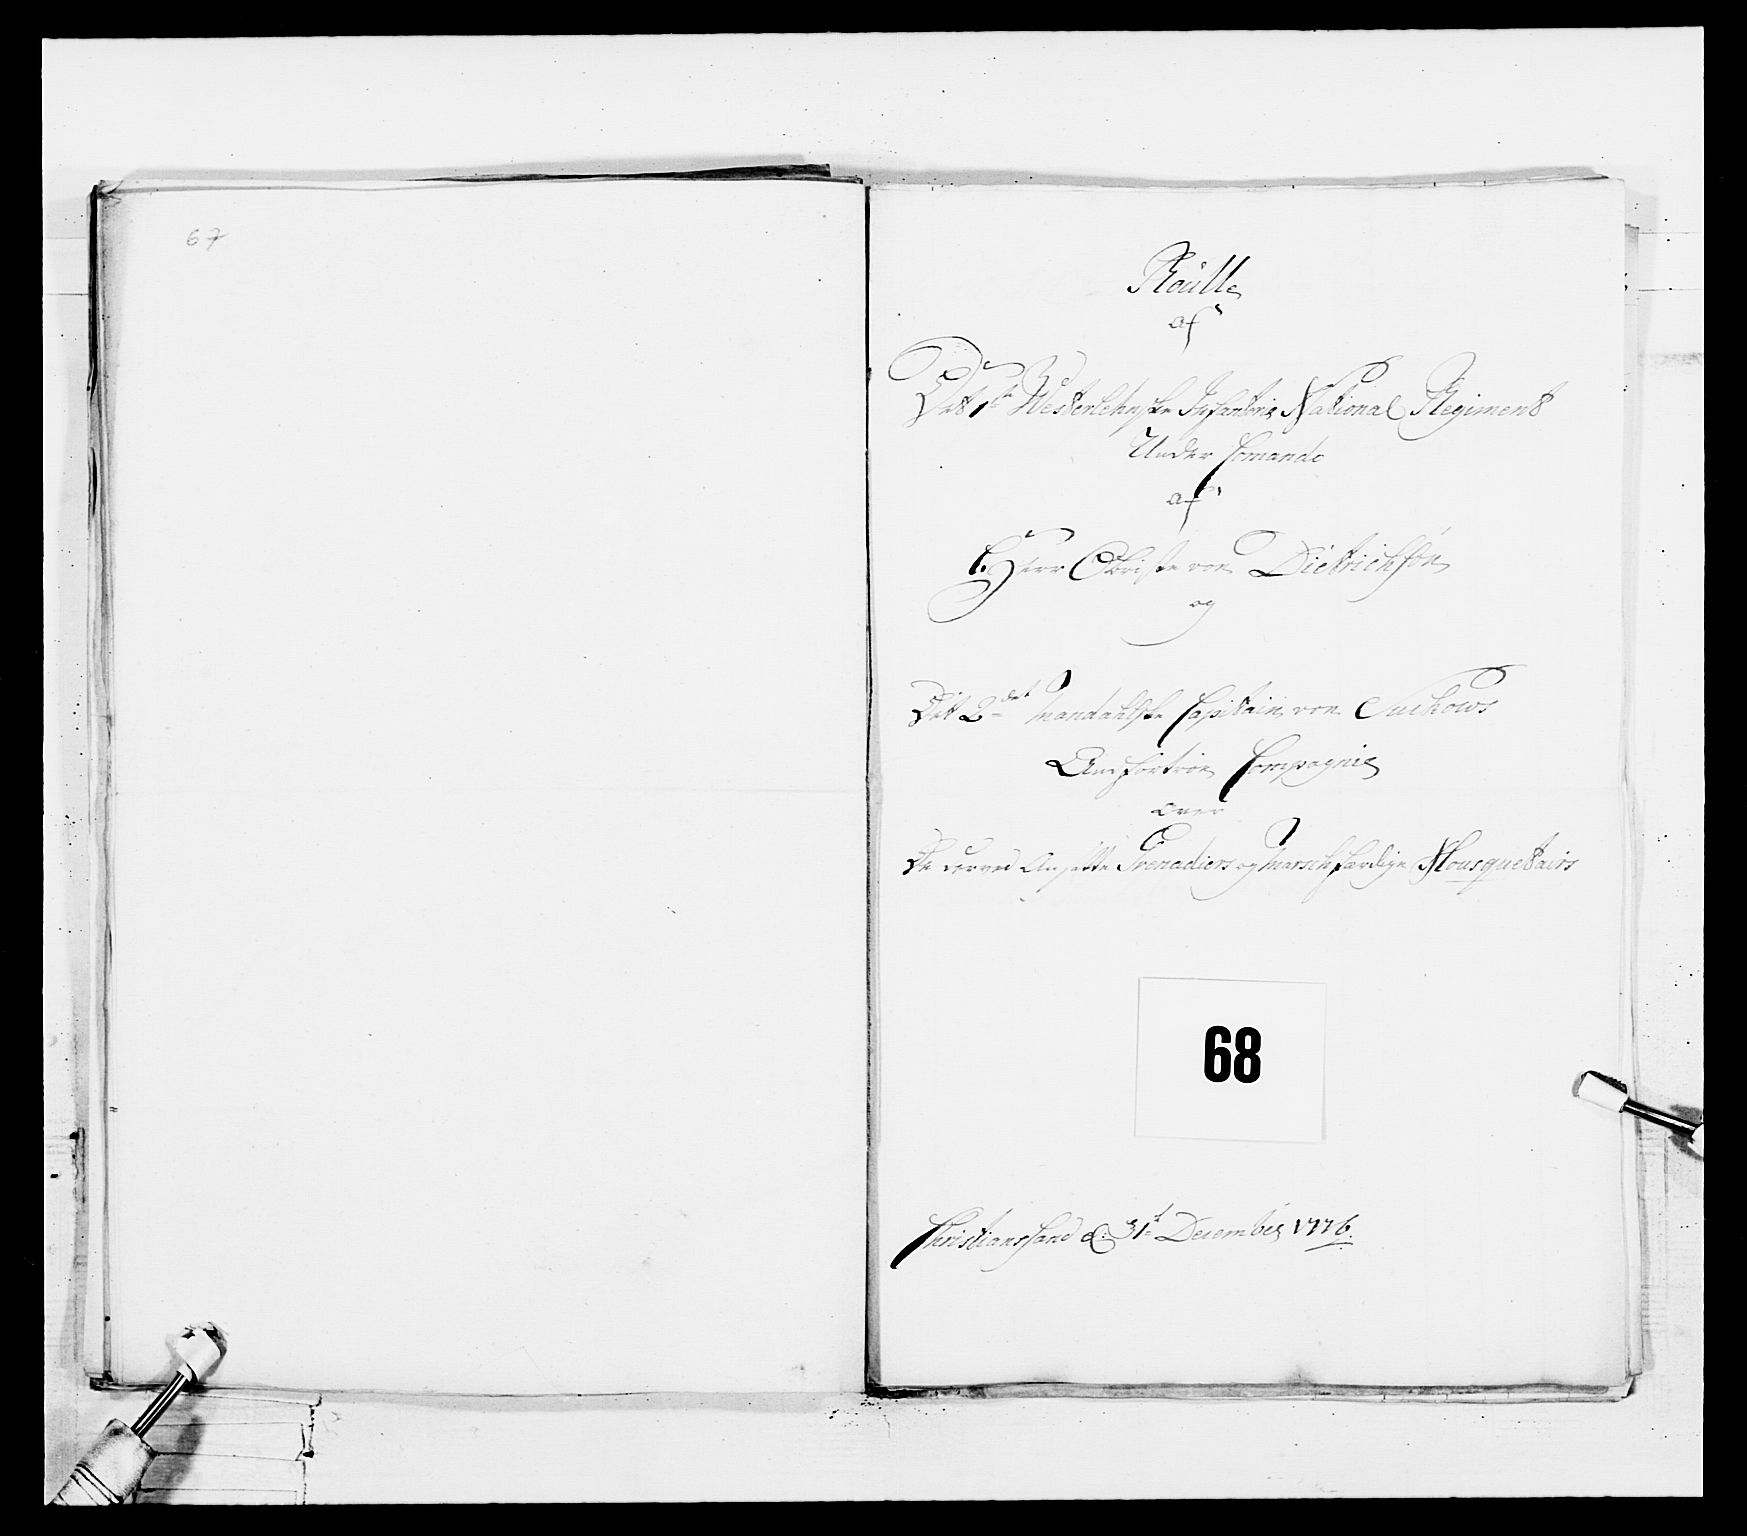 67
Roulle
af
Det 1te Westerlehnske Infanterie National Regiment
Under Comando
af
Hr. Herr Obriste von Dietrichson
og
Det 2det Mandahlske Capitain von Suchows
Anfortroe Compagnie
over
De derved Ansatte Grenadiers og Marschfærdige Mousquetairs
68
Christianssand d: 31t December 1776.